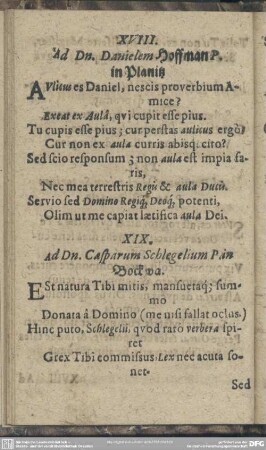 XVIII.
Ad Dn. Danielem Hoffman P.
in Planitz
AVlicus es Daniel, nescis proverbium A-
mice?
Exeat ex Aulâ, qvi cupit esse pius.
Tu cupis esse pius; cur perstas aulicus ergò?
Cur non ex aula curris abisq; cito?
Sed scio responsum; non aula est impia sa-
ris,
Nec mea terrestris Regis & aula Ducis.
Servio sed Domino Regiq́, Deoq́, potenti,
Olim ut me capiat lætifica aula Dei.
XIX.
Ad Dn. Casparum Schlegelium P. in
Bockwa.
ESt natura Tibi mitis, mansuetaq́; sum-
mo
Donata â Domino (me nisi fallat oclus.)
Hinc puto, Schlegeli, qvod raro verbera spi-
ret
Grex Tibi commissus. Lex nec acuta so-
net.
Sed